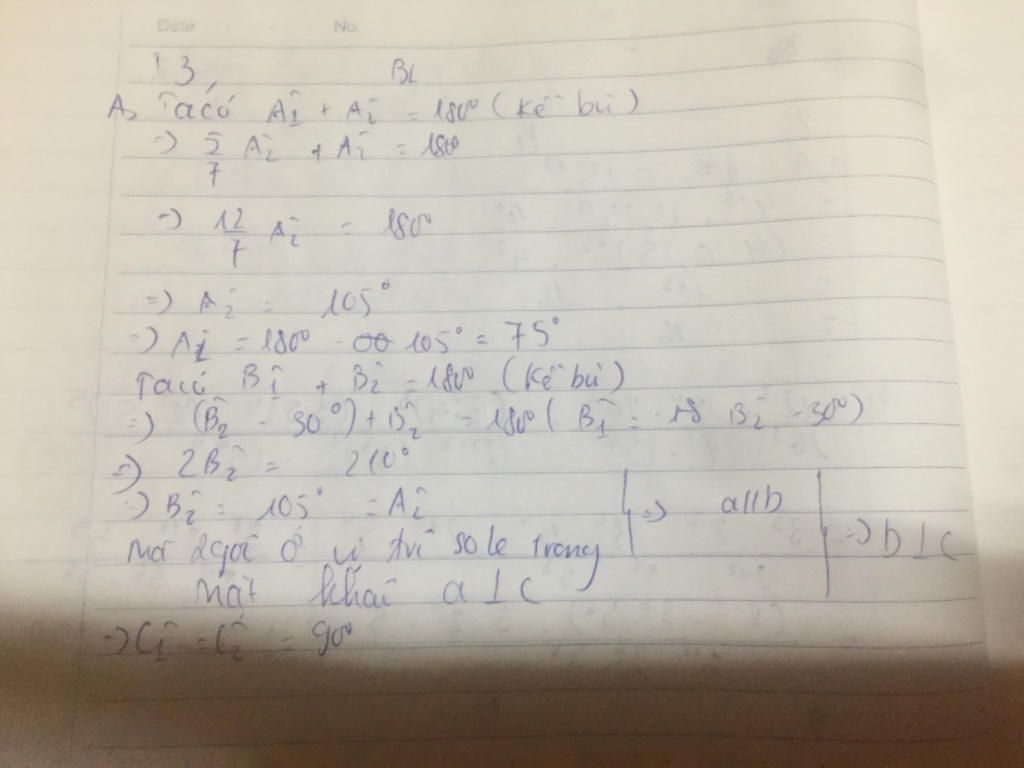 Date No.
3, BL
A, Ta có Â1 + Â2 = 180° (kề bù)
=) 5/7 Â2 + Â2 = 180
=) 12/7 Â2 = 180°
=) Â2 = 105°
=) Â1 = 180° - 105° = 75°
Ta có B̂1 + B̂2 = 180° (kề bù)
=) (B̂2 - 30°) + B̂2 = 180° ( B̂1 = B̂2 - 30°)
=) 2B̂2 = 210°
=) B̂2 = 105° = Â2 =) a//b
Mà 2 góc ở vị trí so le trong =) b⊥c
Mặt khác a⊥c
=) Ĉ1 = Ĉ2 = 90°